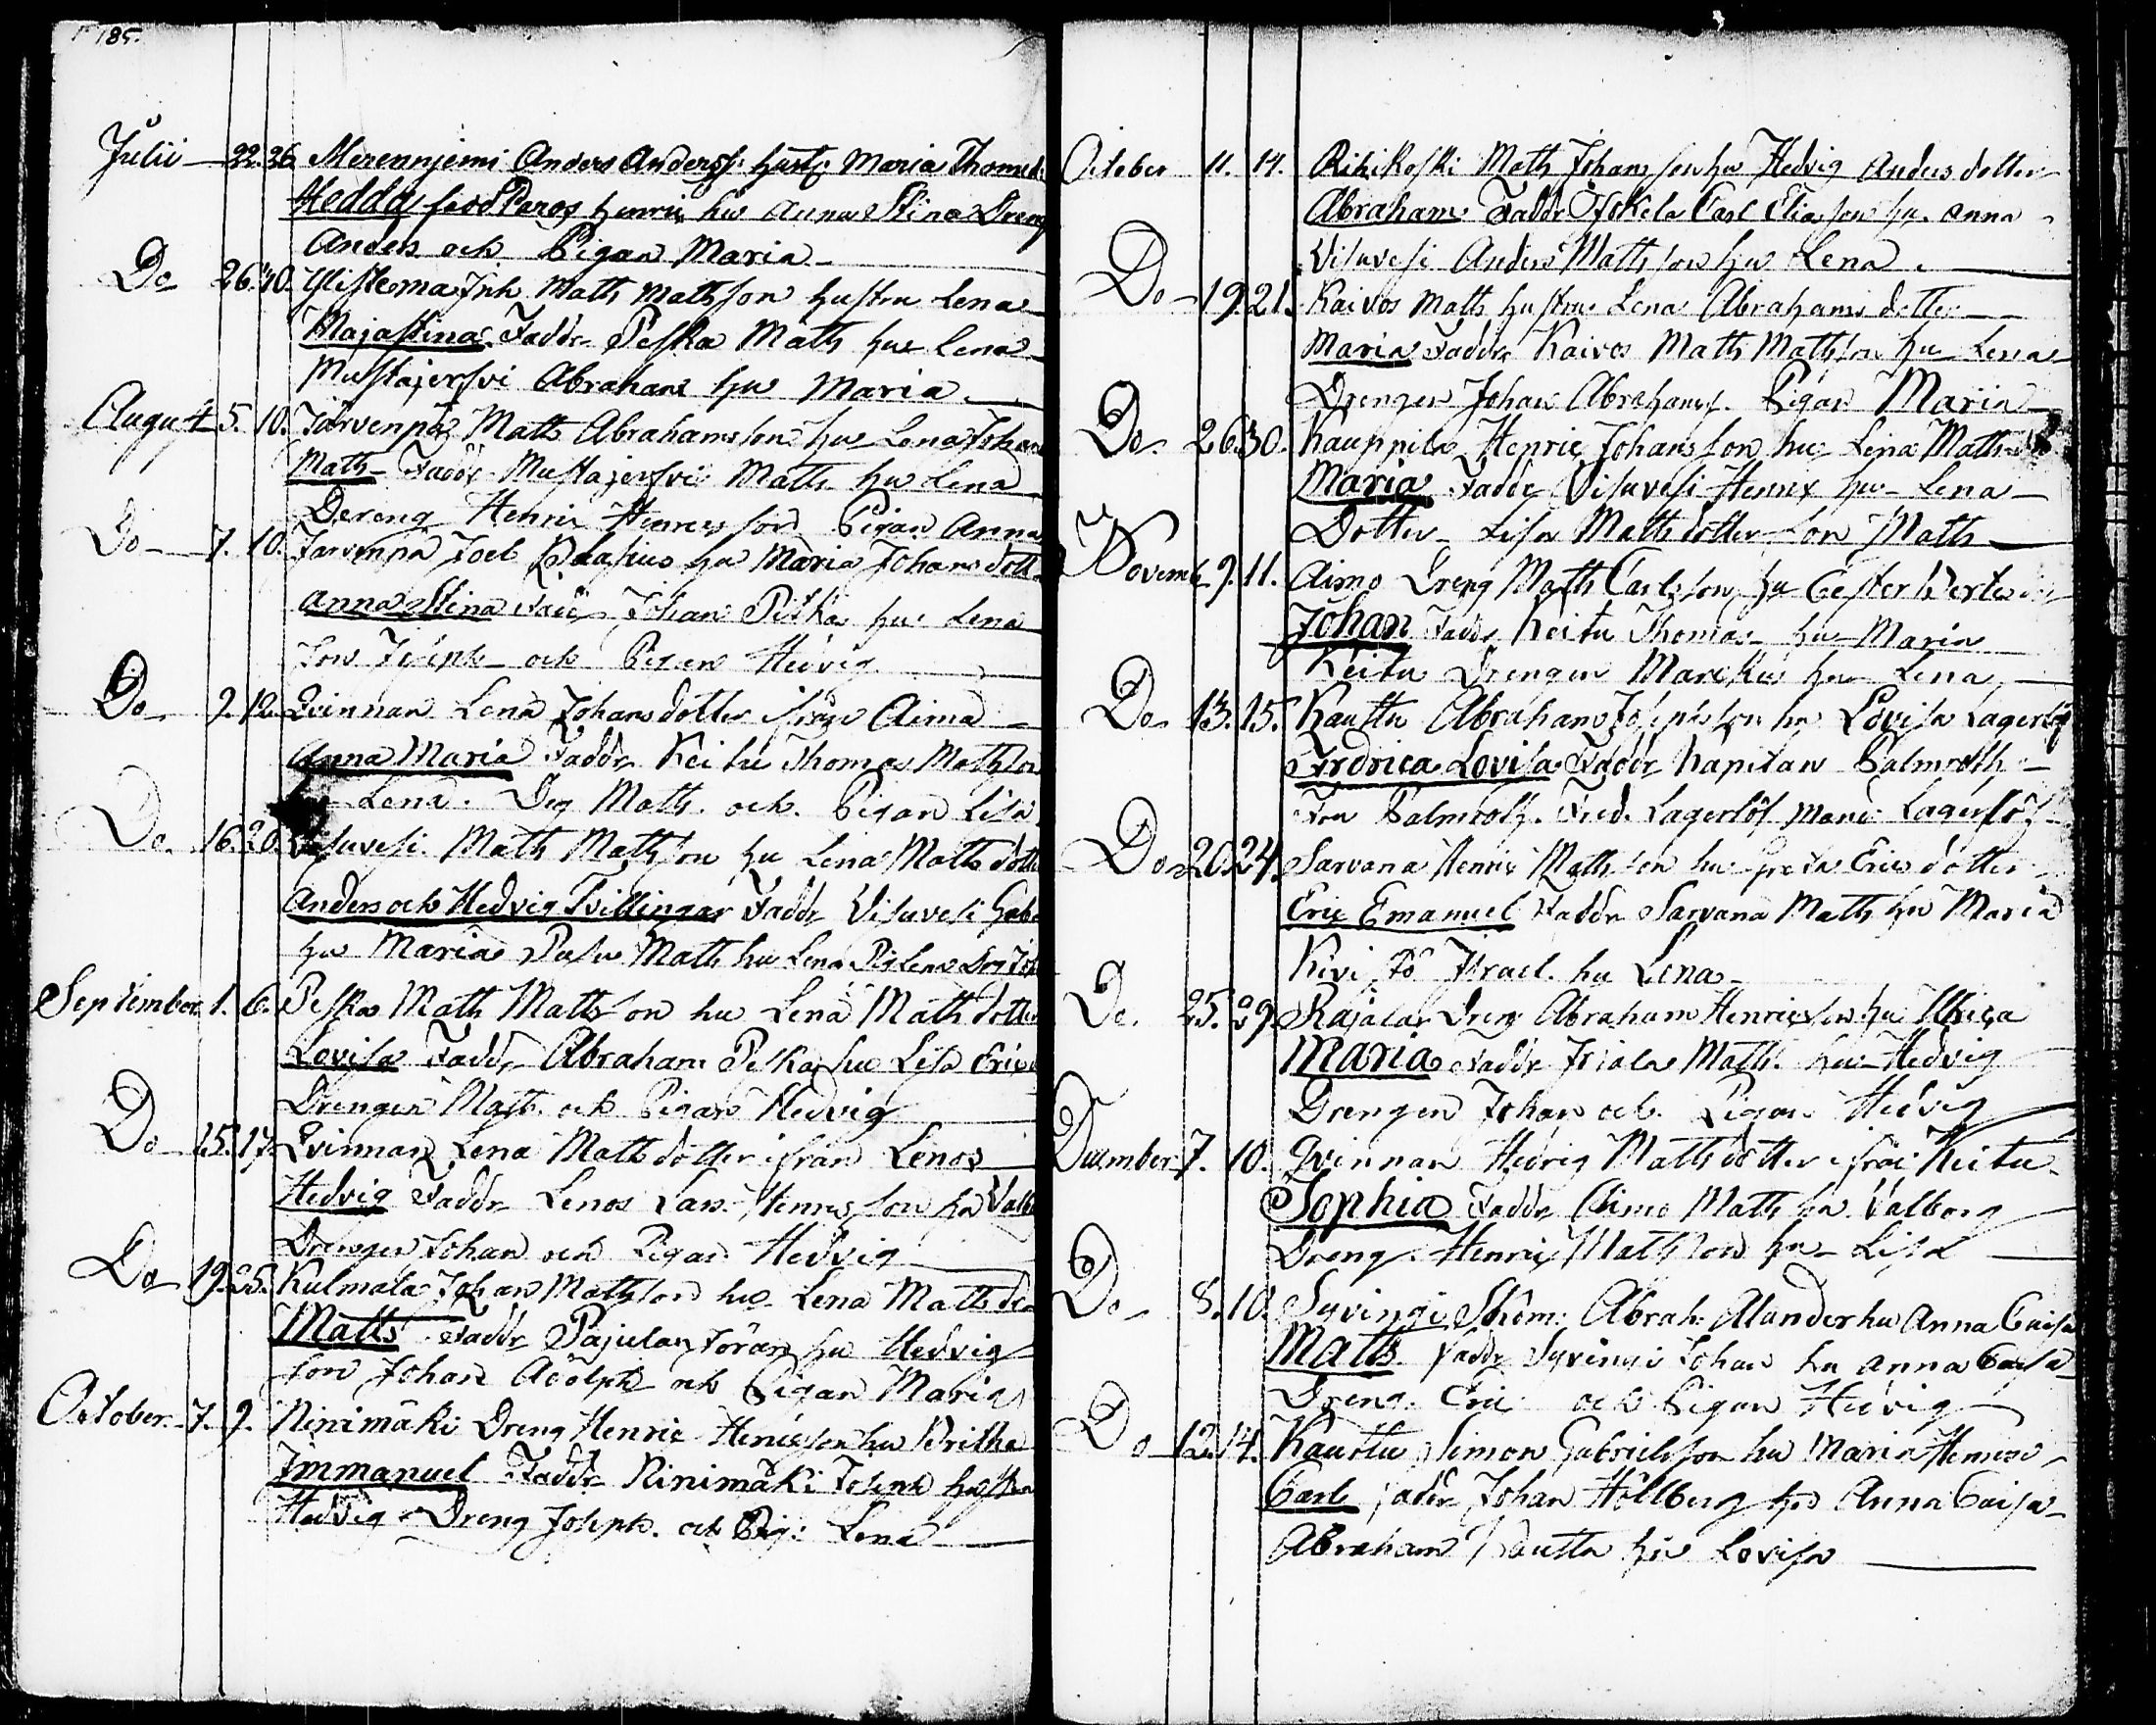 185.
Julii 22. 26. Merennjemi Anders Anderss: hust: Maria Thomsd:
Hedda henric hu Anna Stina Dreng
Anders och Pigan Maria
Do 26. 30. Ylistenna Inh Matts Mattsson hustru Lena
Majastina Faddr Peska Matts hu Lena
Mustajerfvi Abraham hu Maria
Augu 5. 10. Järvenpä Matts Abrahamsson hu Lena Johans
Matts Faddr Mustajerfvi Matts hu Lena
Dreng Henric Henricsson Pigan Anna
Do 7. 10. Jarvenpä Joel Blasius hu Maria Johansdott
Anna Stina Fadd Johan Peska hu Lena
Son Joseph och Pigan Hedvig
Do 9. 12. Qvinnan Lena Johansdotter ifrån Aimä
Anna Maria Faddr Keitu Thomas Mattsson
Lena. Drg Matts och Pigan Lisa
Do. 16. 20. Visuvesi Matts Mattsson hu Lena Mattsdott
Anders och Hedvig Tvillingar Faddr Visuvesi Gabr
hu Maria Matts hu Lena Pig Lena
September 1. 6. Peska Matts Mattsson hu Lena Mattsdotter
Lovisa Faddr Abraham Peska hu Lisa Erics
Drengen Matts och Pigan Hedvig
Do 15. 17. Qvinnan Lena Mattsdotter ifrån Lenos
Hedvig Faddr Lenos Lars Henricsson hu Valb
Drengen Johan och Pigan Hedvig
Do 19. 25. Kulmala Johan Mattsson hu Lena Matts
Matts Faddr Pajulan Jöran hu Hedvig
son Johan Adolph och Pigan Maria
October 7. 9. Ninimäki Dreng Henric Henricsson hu Britha
Immanuel Faddr Ninimäki Joseph hustru
Hedvig Dreng Joseph. och Pig: Lena
October 11. 14. Rihikoski Matts Johansson hu Hedvig Andersdotter
Abraham Faddr Jokela Carl Eliasson hu. Anna
Visuvesi Anders Mattsson hu Lena
Do 19. 21. Kaivos Matts hustru Lena Abrahamsdotter
Maria Faddr Kaivos Matts Mattsson hu Lena
Drengen Johan Abrahams. Pigan Maria
Do. 26. 30. Kauppila Henric Johansson hu Lena Matts
Maria Faddr Visuvesi Henric hu Lena
Dotter Lisa Mattsdotter son Matts
Novemb 9. 11. Aimo Dreng Matts Carlsson hu Cester
Johan Faddr Keitu Thomas hu Maria
Keitu Drengen Marckus hu Lena
Do 13. 15. Kauttu Abraham Josephsson hu Lovisa Lagerlöf
Fredrica Lovisa Faddr Kapitan Palmroth
Fru Palmroth. Fred. Lagerlöf Mari Lagerlöf
Do 20. 24. Sarvana Henric Mattsson hu Greta Ericsdotter
Eric Emanuel Faddr Sarvana Matts hu Maria
Kivistö Israel hu Lena
Do. 25. 29. Rajalan Dreng Abraham Henricsson hu Ulrica
Maria Faddr Matts. hu Hedvig
Drengen Johan och Pigan Hedvig
December 7. 10. Qvinnan Hedvig Mattsdotter ifrån Keitu
Sophia Faddr Aimo Matts hu Valborg
Dreng Henric Mattsson hu Lisa
Do 8. 10. Syvingi Skom: Abrah: Alander hu Anna Caisa
Matts Faddr Syvingi Johan hu Anna Caisa
Dreng Eric och Pigan Hedvig
Do 12. 14. Kauttu Simon Gabrielsson hu Maria
Carl Faddr Johan Hollberg hu Anna Caisa
Abraham Kauttu hu Lovisa